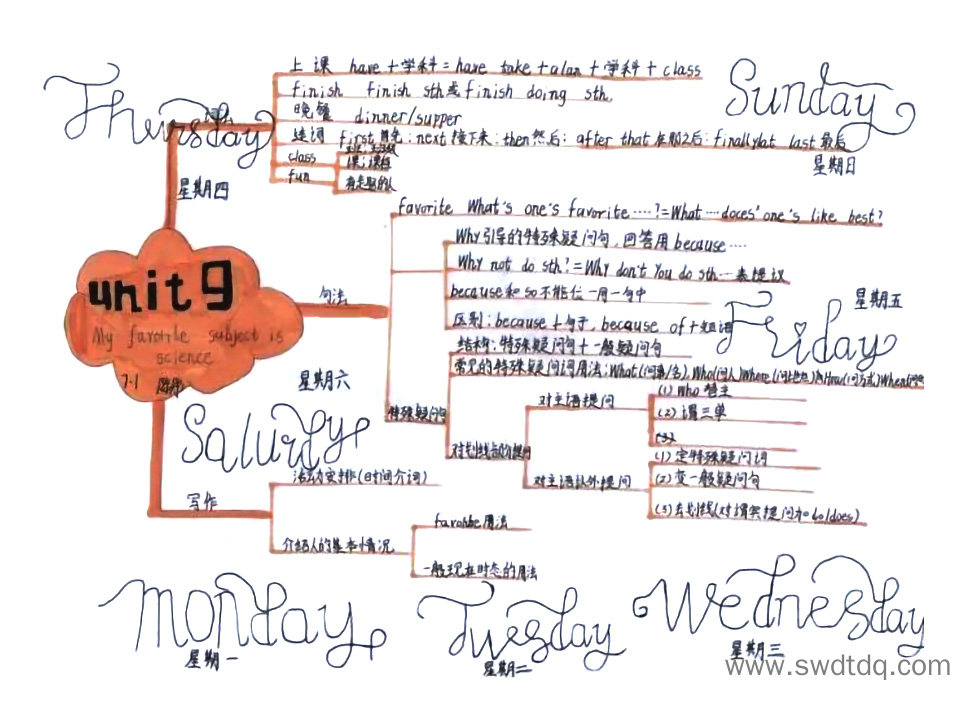 Thursday
星期四
Sunday
星期日
上课 have + 学科 = have take + a/an + 学科 + class
finish finish sth 或 finish doing sth.
晚餐 dinner/supper
连词 first 首先; next 接下来; then 然后; after that 在那之后; finally/at last 最后
class 班; 班级
课; 课程
fun 有走趣的人
unit 9
My favorite subject is science
7.1
句法
favorite What's one's favorite ……?=What …doces' one's like best?
Why引导的特殊疑问句, 回答用 because ……
Why not do sth?=Why don't You do sth…表提议
because和so不能位一用一句中
区别: because + 句子, because of + 短语
星期五
Friday
特殊疑问句
结构: 特殊疑问句 + 一般疑问句
常见的特殊疑问词用法: What(问事/名), Who(问人) Where(问地点) How(问方式) When
对划线部分提问
对主语提问
(1) Who 替主
(2) 谓三单
对主语以外提问
(1) 定特殊疑问词
(2) 变一般疑问句
(3) 去划线(对谓宾提问加 do/does)
星期六
Salurdy
写作
活动安排(时间介词)
介绍人的基本情况
favorite 用法
一般现在时态的用法
Monday
星期一
Tuesday
星期二
Wednesday
星期三
www.swdtdq.com